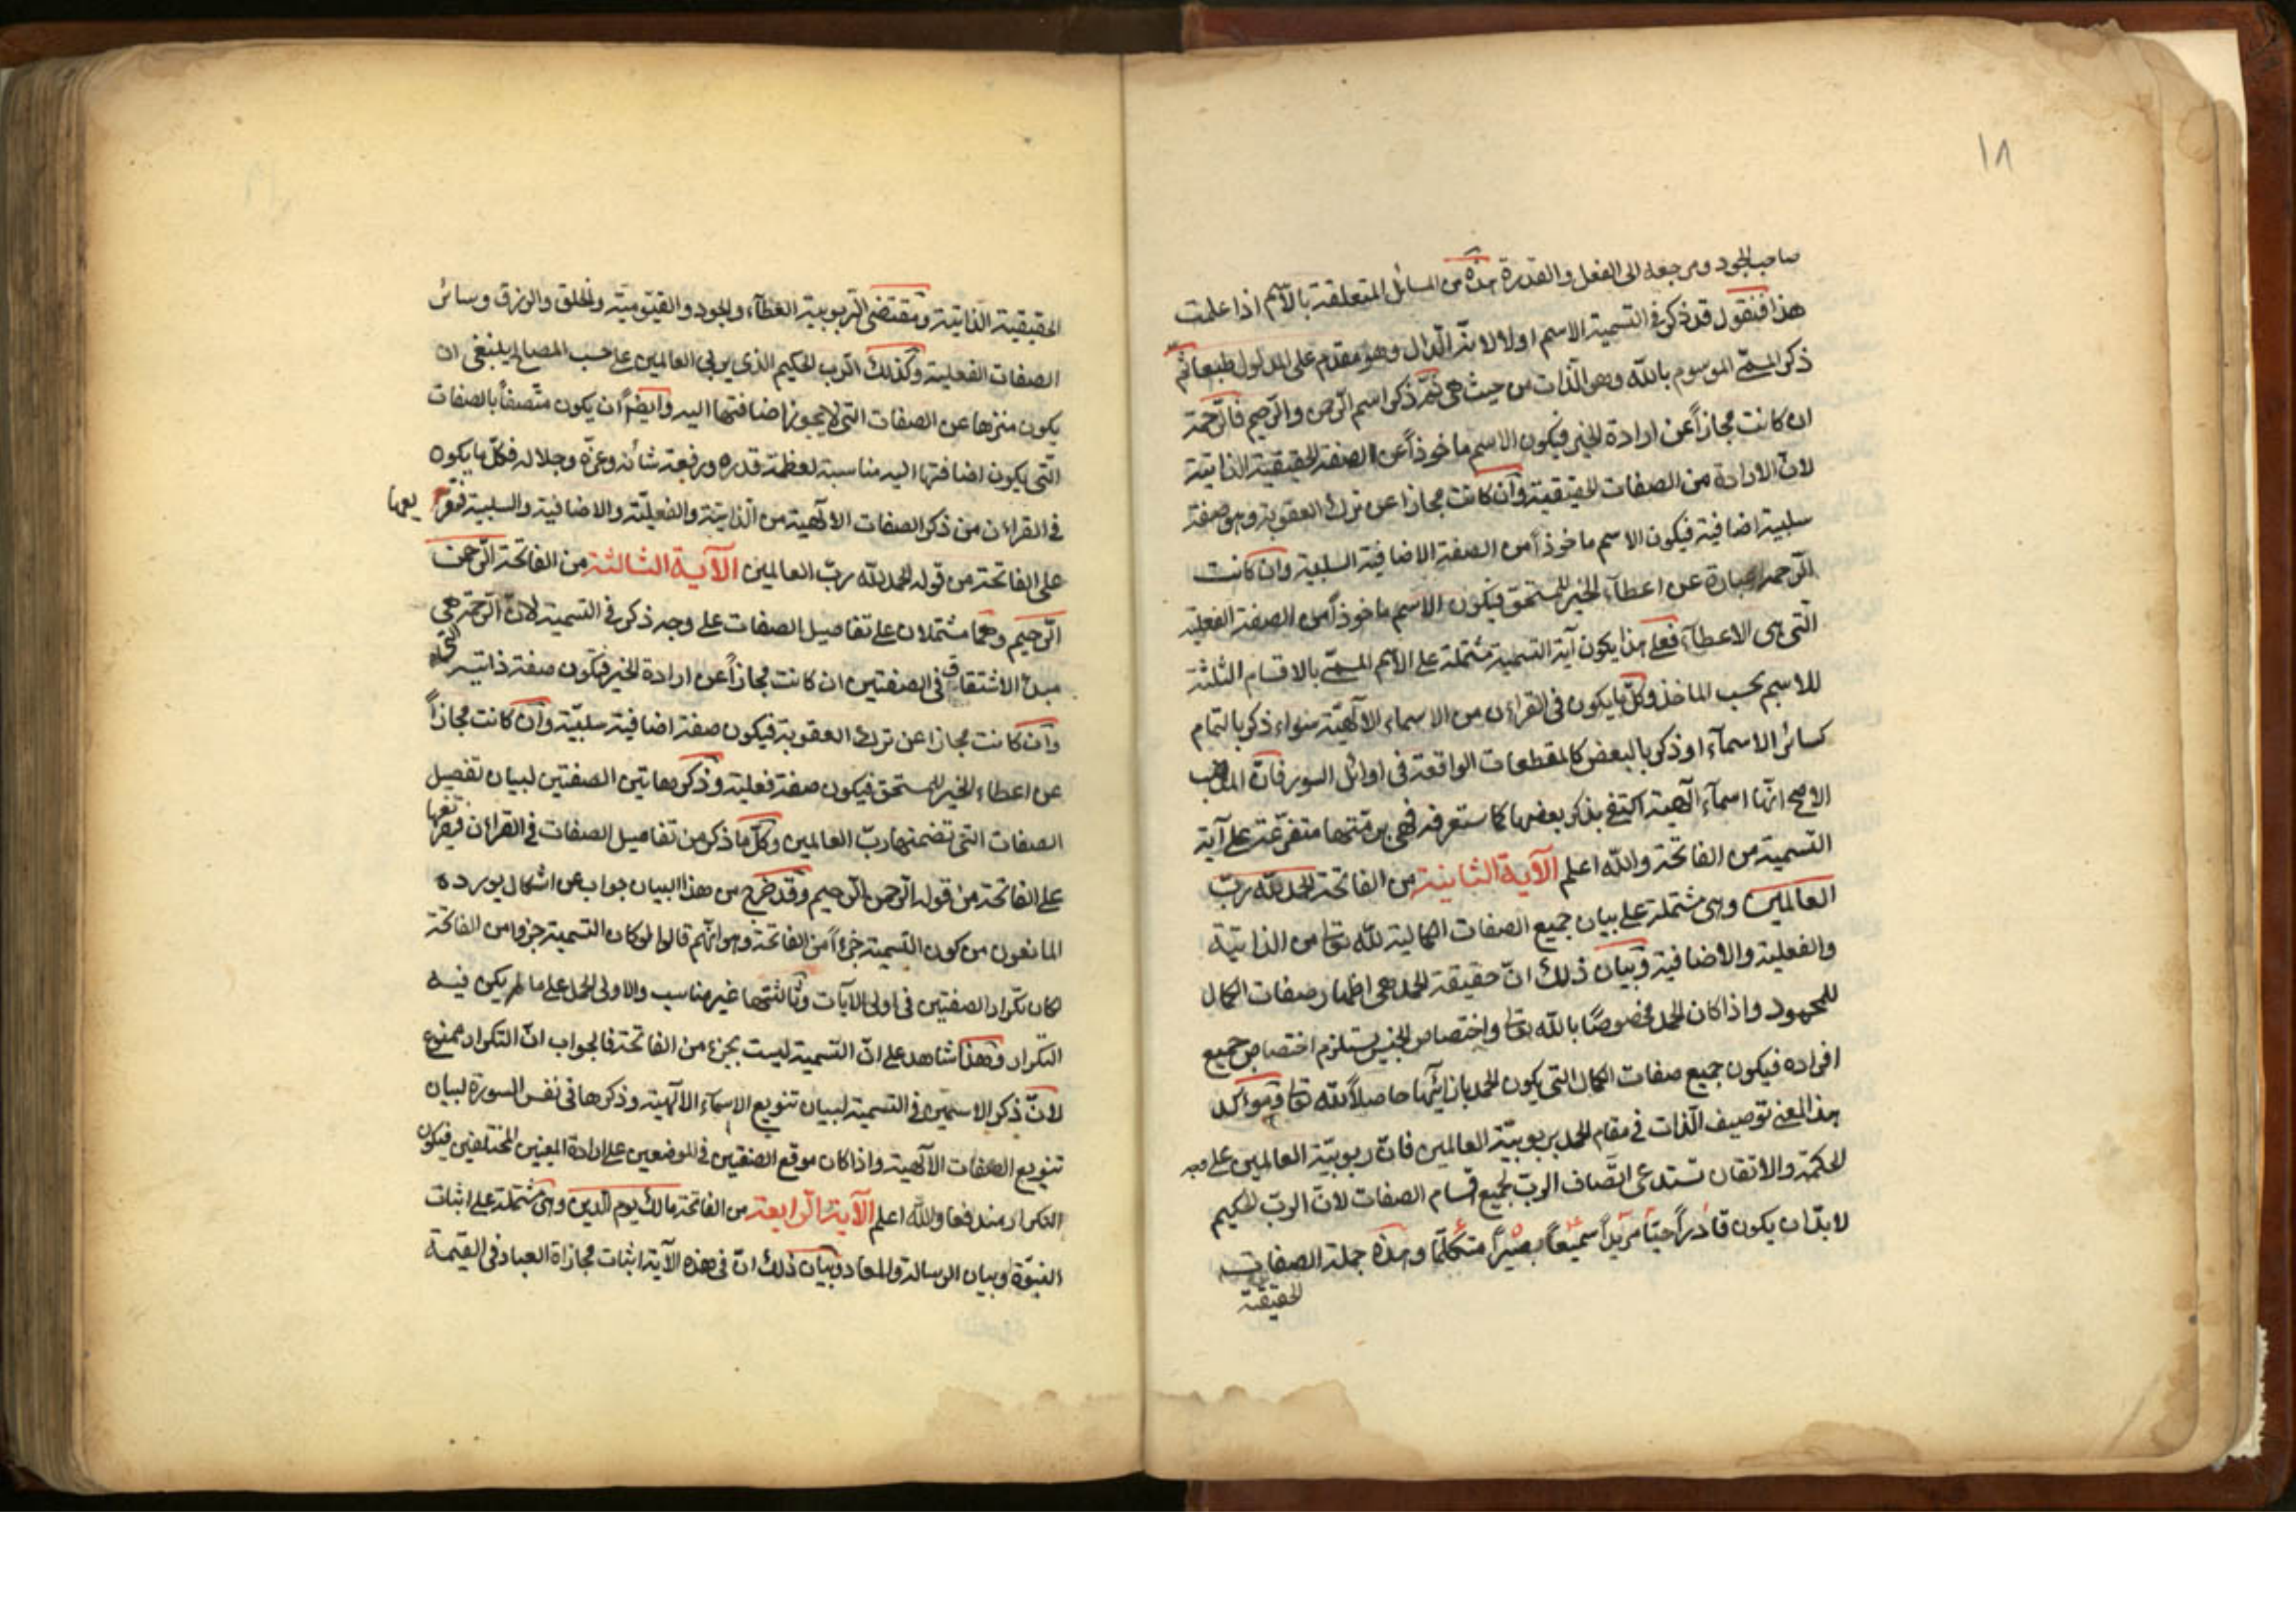 ١٨
صاحب الجود ومرجعه الى الفعل والقدرة هذه من المسائل المتعلقة بالاسم اذا علمت
هذا فنقول قد ذكر في التسمية الاسم اولا لانه الدال وهو مقدم على المدلول طبعا ثم
ذكر المسمّى الموسوم بالله وهو الذات من حيث هى ثمّ ذكر اسم الرحمن والرحيم فالرحمة
ان كانت مجازاً عن ارادة الخير فيكون الاسم ماخوذاً عن الصفة الحقيقية الذاتية
لان الارادة من الصفات الحقيقية وان كانت مجازا عن ترك العقوبة وهو صفة
سلبية اضافية فيكون الاسم ماخوذاً من الصفة الاضافية السلبية وان كانت
الرحمة عبارة عن اعطآء الخير للمستحق فيكون الاسم ماخوذاً من الصفة الفعلية
التى هى الاعطآء فعلى هذا يكون آية التسمية مشتملة على الاسم المسمّى بالاقسام الثلثة
للاسم بحسب الماخذ وكلّ ما يكون فى القراءن من الاسماء الآلهيّة سواء ذكر بالتمام
كسائر الاسمآء او ذكر بالبعض كالمقطعات الواقعة فى اوائل السور فان المذهب
الاصح انها اسمآء آلهية اكتفى بذكر بعضها كما ستعرفه فهى برمتها متفرّعة على آية
التسمية من الفاتحة والله اعلم الآية الثانية من الفاتحة الحمد لله ربّ
العالمين وهى مشتملة على بيان جميع الصفات الكمالية لله تعالى من الذاتية
والفعلية والاضافية وبيان ذلك انّ حقيقة الحمد هى اظهار صفات الكمال
للمحمود واذا كان الحمد مخصوصًا بالله تعالى واختصاص الجنس يستلزم اختصاص جميع
افراده فيكون جميع صفات الكمال التى يكون الحمد بازائها حاصلاً لله تعالى وموكد
هذا المعنى توصيف الذات فى مقام الحمد بربوبيّة العالمين فانّ ربوبيّة العالمين على وجه
الحكمة والاتقان تستدعى اتّصاف الربّ بجميع اقسام الصفات لانّ الربّ الحكيم
لا بدّ ان يكون قادراً حيّاً مريداً سميعاً بصيراً متكلّماً وهذه جملة الصفات
الحقيقية
الحقيقية الذاتية ومقتضى الربوبية العطآء والجود والقيّومية والخلق والرزق وسائر
الصفات الفعلية وكذلك الرب الحكيم الذى يربى العالمين على حسب المصالح ينبغى ان
يكون منزها عن الصفات التى لا يجوز اضافتها اليه وايضاً ان يكون متّصفاً بالصفات
الّتى يكون اضافتها اليه مناسبة لعظمة قدره ورفعة شأنه وعزّه وجلاله فكلّ ما يكون
فى القراءن من ذكر الصفات الآلهية من الذاتية والفعليّة والاضافية والسلبية فمتفرّع
على الفاتحة من قوله الحمد لله ربّ العالمين الآية الثالثة من الفاتحة الرّحمن
الرّحيم وهما مشتملان على تفاصيل الصفات على وجه ذكر فى التسمية لانّ الرّحمة هى التى
مبدء الاشتقاق فى الصفتين ان كانت مجازاً عن ارادة الخير فيكون صفة ذاتية
وان كانت مجازا عن ترك العقوبة فيكون صفة اضافية سلبيّة وان كانت مجازاً
عن اعطاء الخير للمستحق فيكون صفة فعلية وذكر هاتين الصفتين لبيان تفصيل
الصفات التى تضمنتها ربّ العالمين وكلّ ما ذكر من تفاصيل الصفات فى القراءن
على الفاتحة من قوله الرحمن الرحيم وقد خرج من هذا البيان جواب عن اشكال يورده
المانعون من كون التسمية جزءاً من الفاتحة وهو انّهم قالوا لو كان التسمية جزوا من الفاتحة
لكان تكرار الصفتين فى اولى الآيات وثالثتها غير مناسب والاولى الحمل على ما لم يكن فيه
التكرار وهذا شاهد على انّ التسمية ليست بجزء من الفاتحة فالجواب انّ التكرار ممنوع
لانّ ذكر الاسمين فى التسمية لبيان تنويع الاسمآء الآلهية وذكرها فى نفس السورة لبيان
تنويع الصفات الآلهية واذا كان موقع الصفتين فى الموضعين على ارادة المعنيين المختلفين فيكون
التكرار مندفعا والله اعلم الآية الرابعة من الفاتحة مالك يوم الدين وهى مشتملة على اثبات
النبوّة وبيان الرسالة والمعاد وبيان ذلك انّ فى هذه الآية اثبات مجازاة العباد فى القيمة